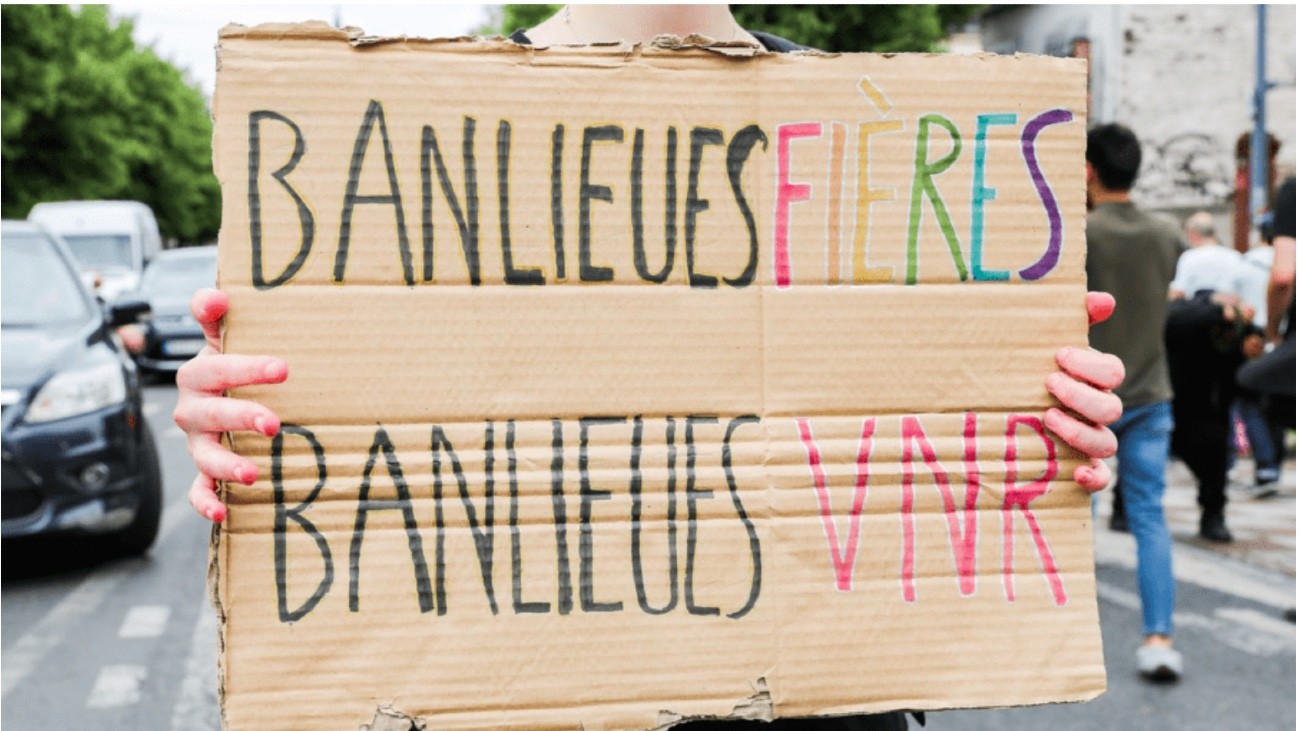 BANLIEUES FIÈRES
BANLIEUES VNR